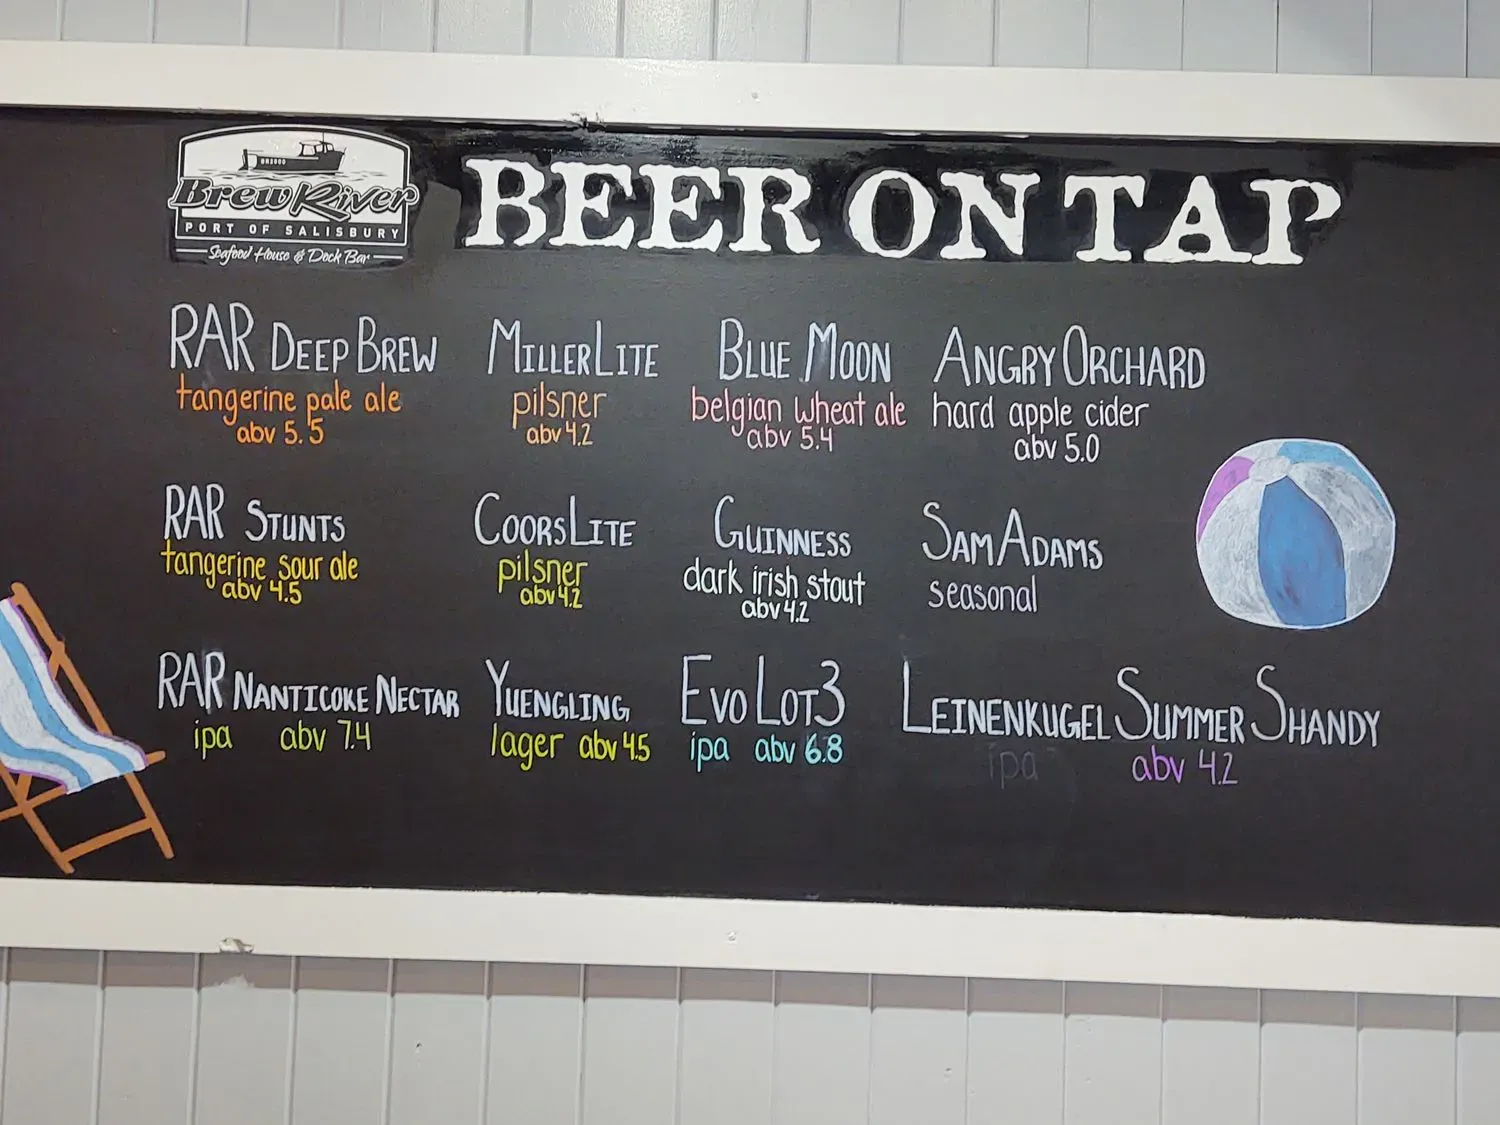 BrewRiver
PORT OF SALISBURY
Seafood House & Dock Bar
BEER ON TAP
RAR DEEP BREW
tangerine pale ale
abv 5.5
MILLER LITE
pilsner
abv 4.2
BLUE MOON
belgian wheat ale
abv 5.4
ANGRY ORCHARD
hard apple cider
abv 5.0
RAR STUNTS
tangerine sour ale
abv 4.5
COORS LITE
pilsner
abv 4.2
GUINNESS
dark irish stout
abv 4.2
SAM ADAMS
seasonal
RAR NANTICOKE NECTAR
ipa abv 7.4
YUENGLING
lager abv 4.5
EVO LOT 3
ipa abv 6.8
LEINENKUGEL SUMMER SHANDY
ipa abv 4.2